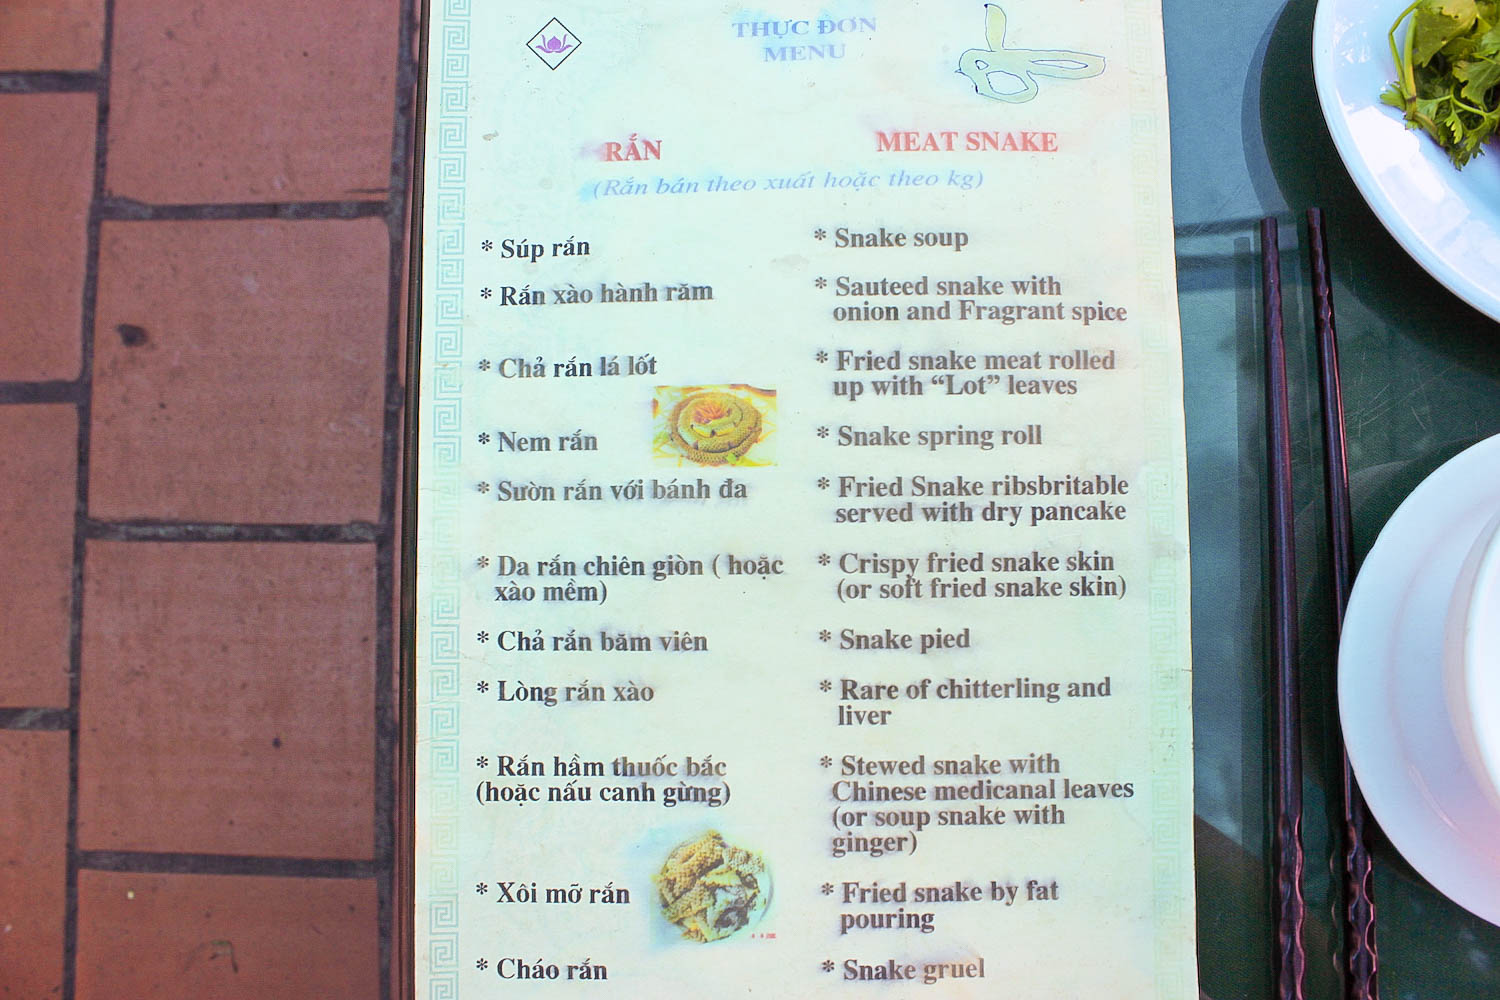 THỰC ĐƠN
MENU
RẮN
MEAT SNAKE
(Rắn bán theo xuất hoặc theo kg)
* Súp rắn
* Snake soup
* Rắn xào hành răm
* Sauteed snake with
onion and Fragrant spice
* Chả rắn lá lốt
* Fried snake meat rolled
up with “Lot” leaves
* Nem rắn
* Snake spring roll
* Sườn rắn với bánh đa
* Fried Snake ribsbritable
served with dry pancake
* Da rắn chiên giòn ( hoặc
xào mềm)
* Crispy fried snake skin
(or soft fried snake skin)
* Chả rắn băm viên
* Snake pied
* Lòng rắn xào
* Rare of chitterling and
liver
* Rắn hầm thuốc bắc
(hoặc nấu canh gừng)
* Stewed snake with
Chinese medicanal leaves
(or soup snake with
ginger)
* Xôi mỡ rắn
* Fried snake by fat
pouring
* Cháo rắn
* Snake gruel